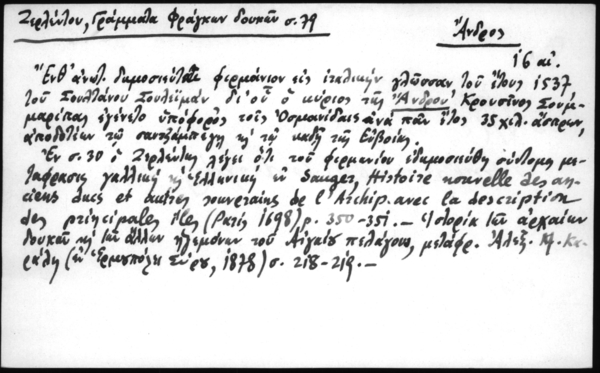 Ζερλέντου, Γράμματα Φράγκων δουκῶν σ. 79
Ἄνδρος
16 αἰ.
Ἔνθ' ἀνωτ. δημοσιεύεται φερμάνιον εἰς ἰταλικὴν γλῶσσαν τοῦ ἔτους 1537,
τοῦ Σουλτάνου Σουλεϊμὰν δι' οὗ ὁ κύριος τῆς Ἄνδρου Κρουσῖνος Σουμ-
μαρίπας ἐγένετο ὑπόφορος τοῖς Ὀσμανίδαις ἀνὰ πᾶν ἔτος 35 χιλ. ἄσπρων,
ἀποδοτέων τῷ σαντζάμπεγη κὴ τῷ καδῇ τῆς Εὐβοίας.
Ἐν σ. 30 ὁ Ζερλέντης λέγει ὅτι τοῦ φερμανίου ἐδημοσιεύθη σύντομη με-
τάφρασις γαλλικὴ κὴ Ἑλληνικὴ ἐν Sauger, Histoire nouvelle des an-
ciens ducs et autres souverains de l'Archip. avec la description
des principales îles (Paris 1698) p. 350-351. — Ἱστορία τῶν ἀρχαίων
δουκῶν κὴ τῶν ἄλλων ἡγεμόνων τοῦ Αἰγαίου πελάγους, μετάφρ. Ἀλεξ. Μ. Κα-
ράλη (ἐν Ἑρμουπόλει Σύρου, 1878) σ. 218-219. —